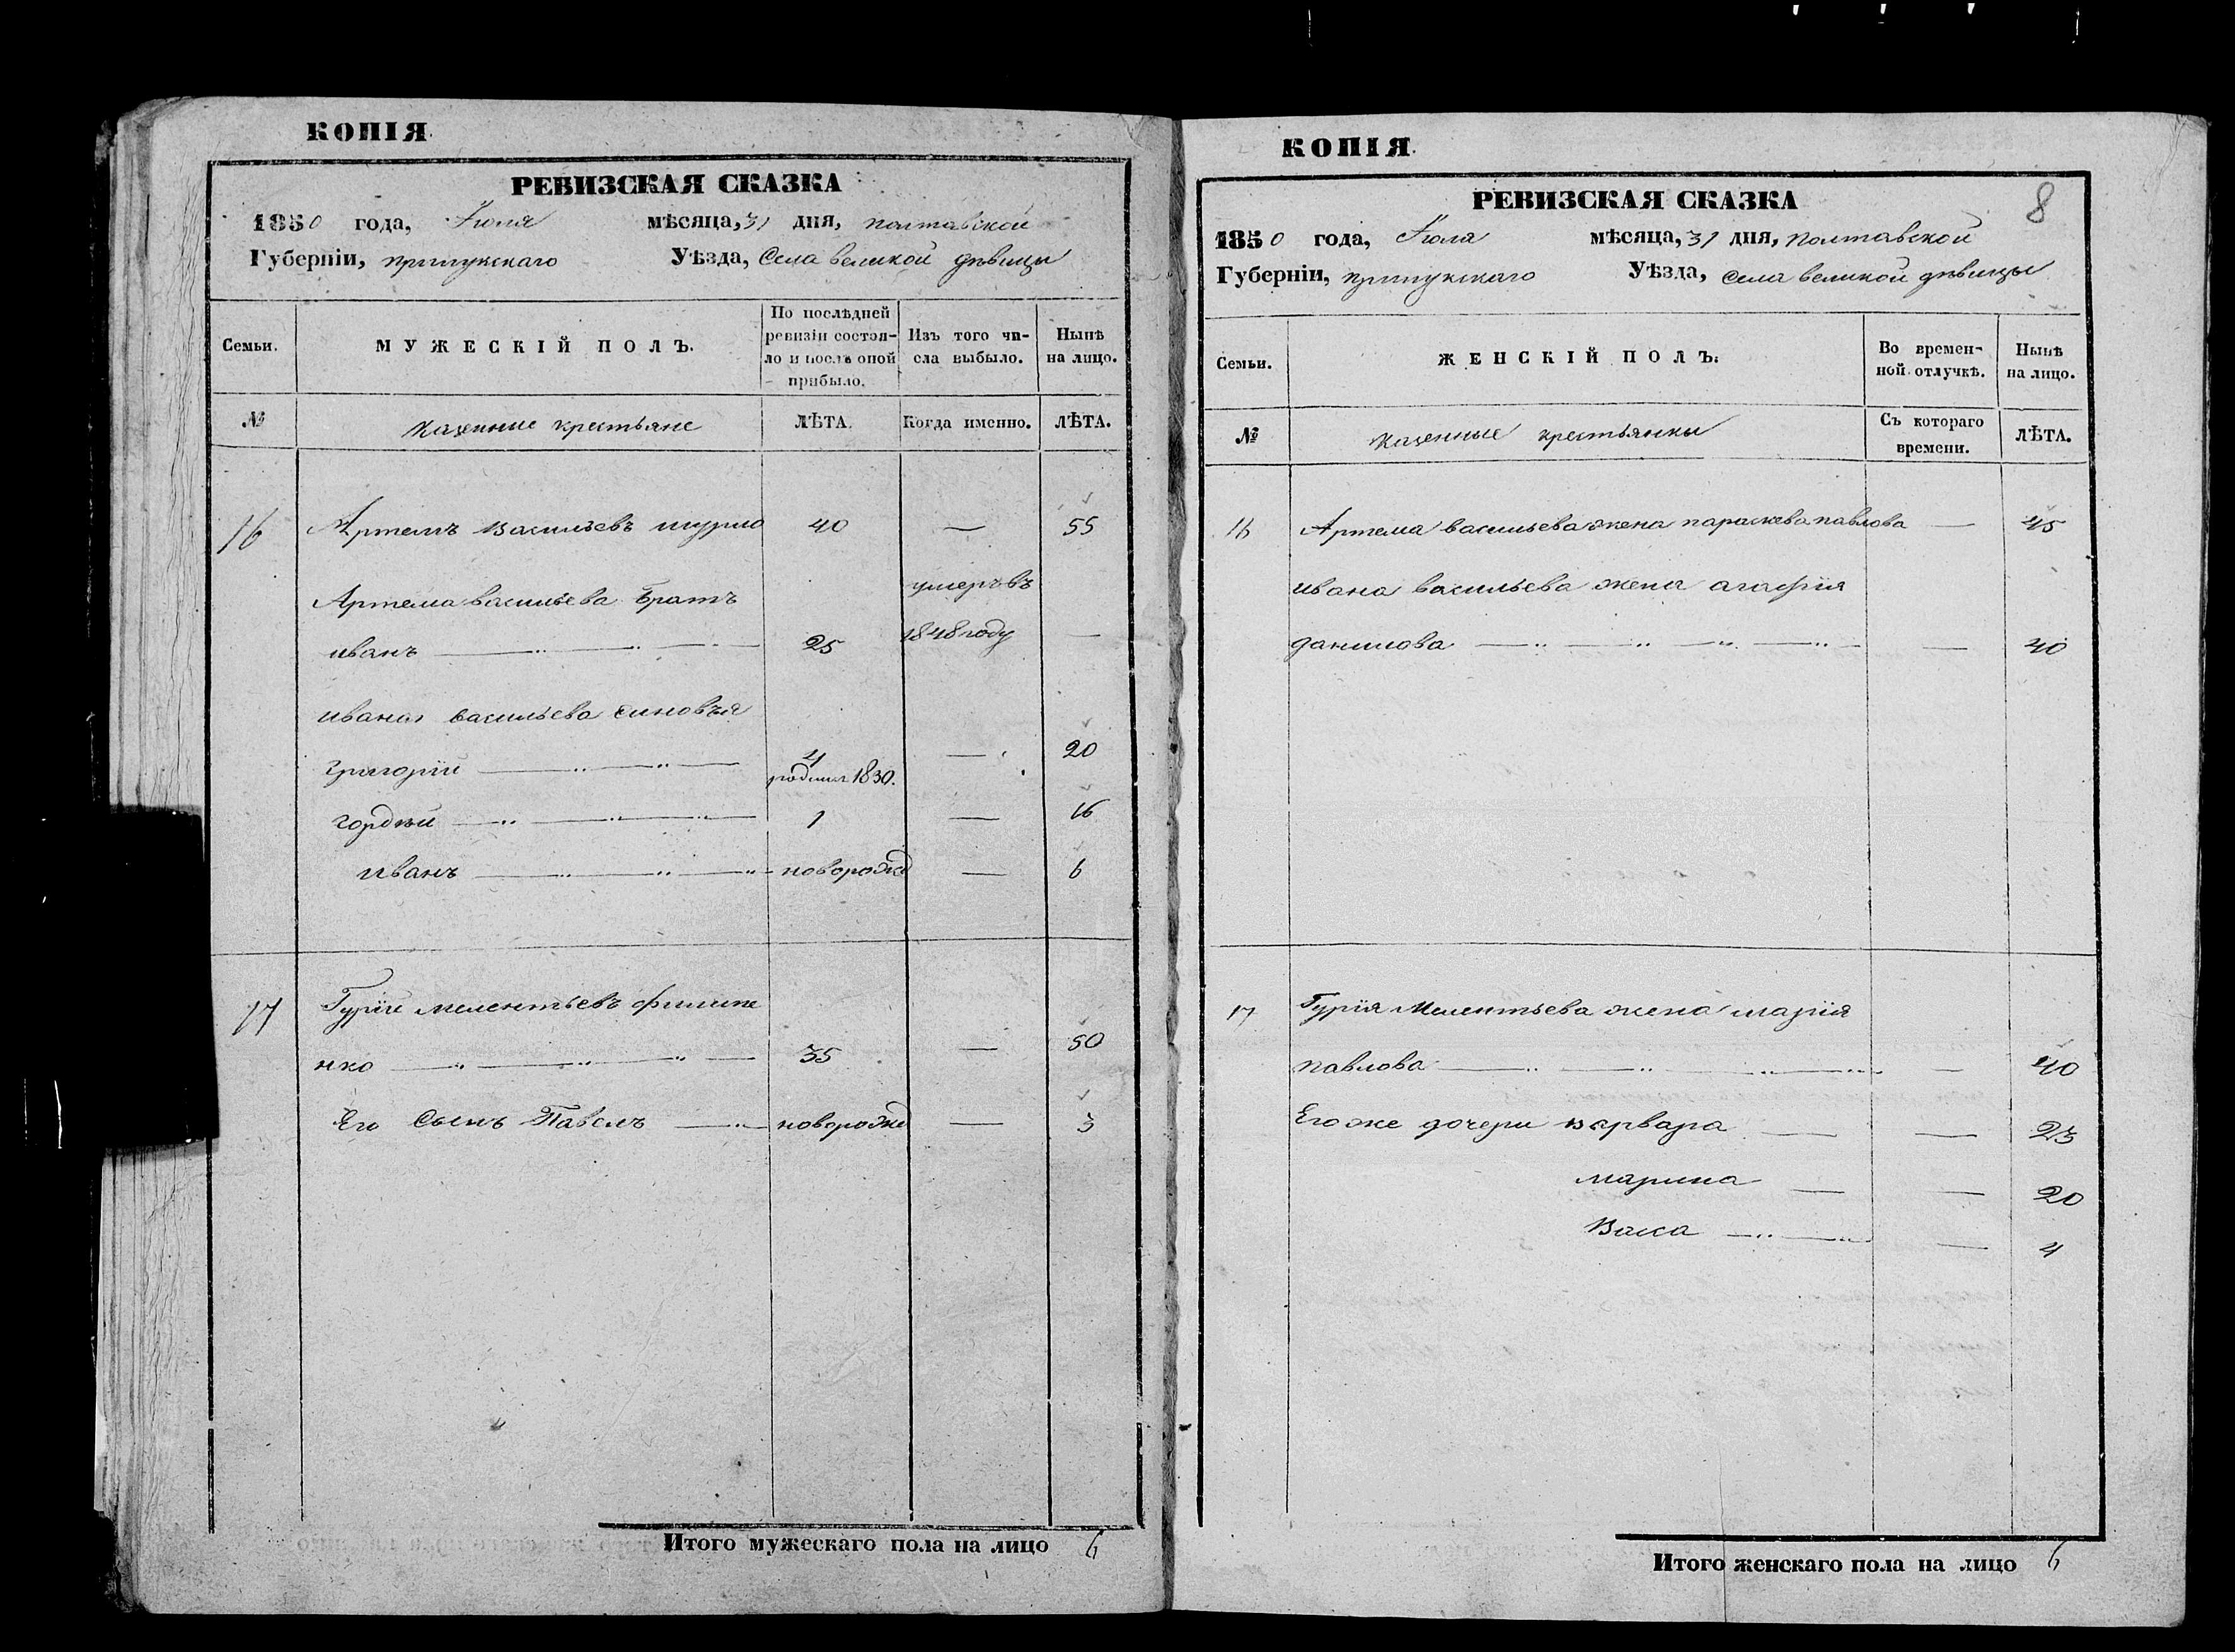 КОПІЯ.
РЕВИЗСКАЯ СКАЗКА
1850 года, Іюля мѣсяца, 31 дня, полтавской
Губерніи, прилукскаго Уѣзда, Села великой дѣвицы
Семьи. МУЖЕСКІЙ ПОЛЪ. По послѣдней ревизіи состоя- ло и послѣ оной прибыло. Изъ того чи- сла выбыло. Нынѣ на лицо.
№ казенные крестьяне ЛѢТА. Когда именно. ЛѢТА.
16 Артемъ Васильевъ шурло 40 — 55
Артема васильева братъ умеръ въ
иванъ 25 1848 году —
ивана васильева синовья
григорій 4 — 20
родился 1830.
гордѣй 1 — 16
иванъ новорожд — 6
17 Гурій мелентьевъ филипе
нко 35 — 50
Его Сынъ Павелъ новорожд — 3
Итого мужескаго пола на лицо 6
КОПІЯ.
8
РЕВИЗСКАЯ СКАЗКА
1850 года, Іюля мѣсяца, 31 дня, полтавской
Губерніи, прилукскаго Уѣзда, Села великой дѣвицы
Семьи. ЖЕНСКІЙ ПОЛЪ. Во времен- ной отлучкѣ. Нынѣ на лицо.
№ казенные крестьянки Съ котораго времени. ЛѢТА.
16 Артема васильева жена параскева павлова — 45
ивана васильева жена агафія
данилова — 40
17 Гурія Мелентьева жена марія
павлова — 40
Его же дочери варвара — 23
марина — 20
Васса — 4
Итого женскаго пола на лицо 6